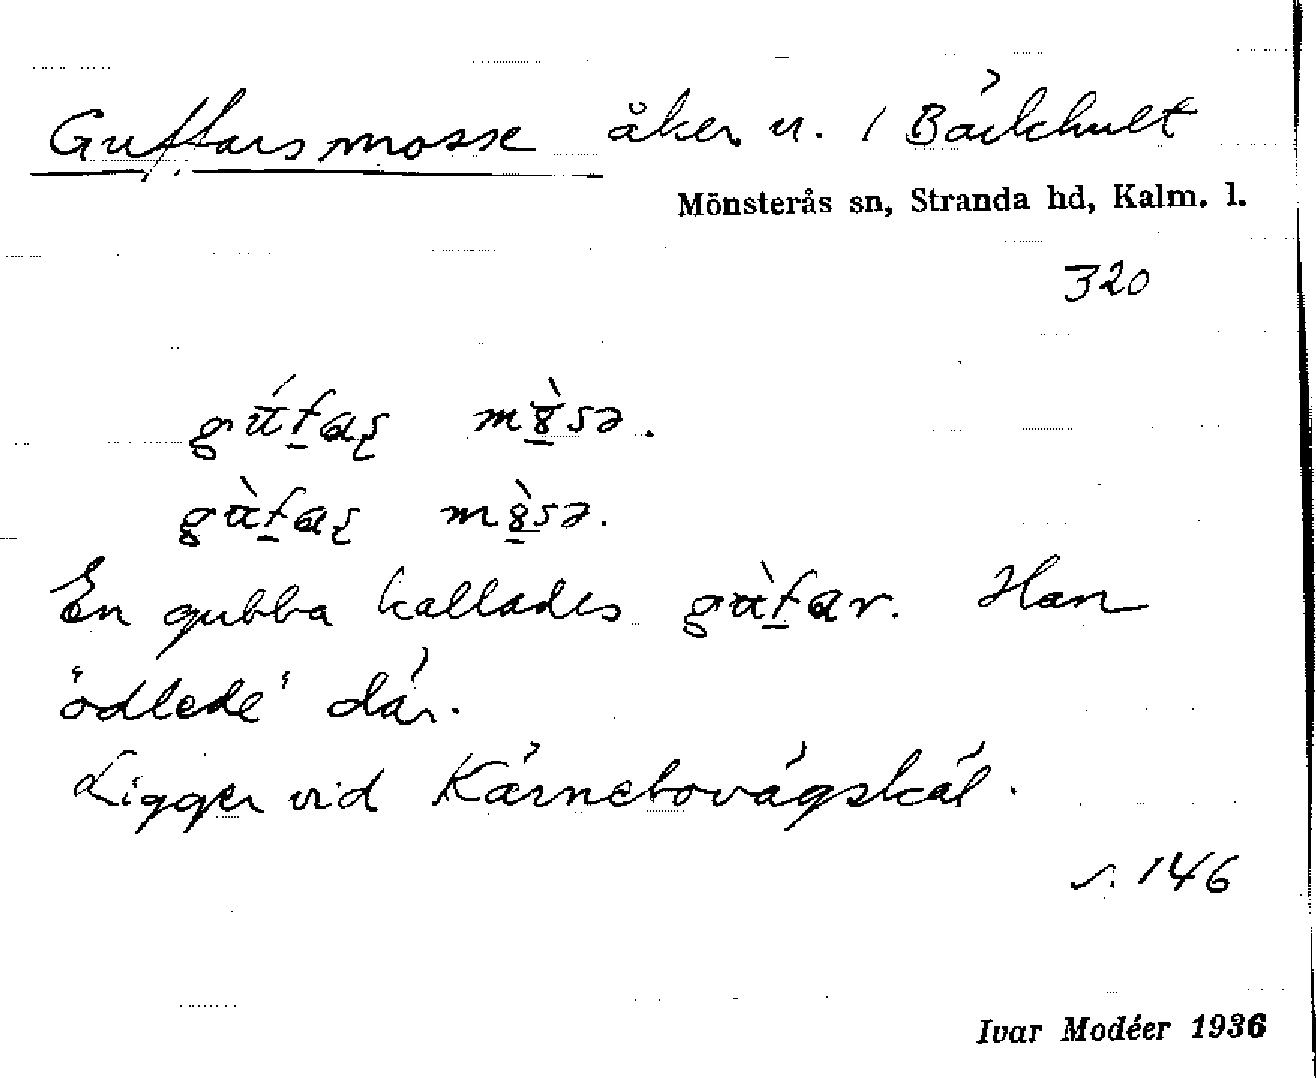 Guffarsmosse åker u. / Bäckhult
Mönsterås sn, Stranda hd, Kalm. l.
320
En gubba kallades Han
"odlede" där.
Ligger vid Kärnebovägskäl.
s. 146
Ivar Modéer 1936